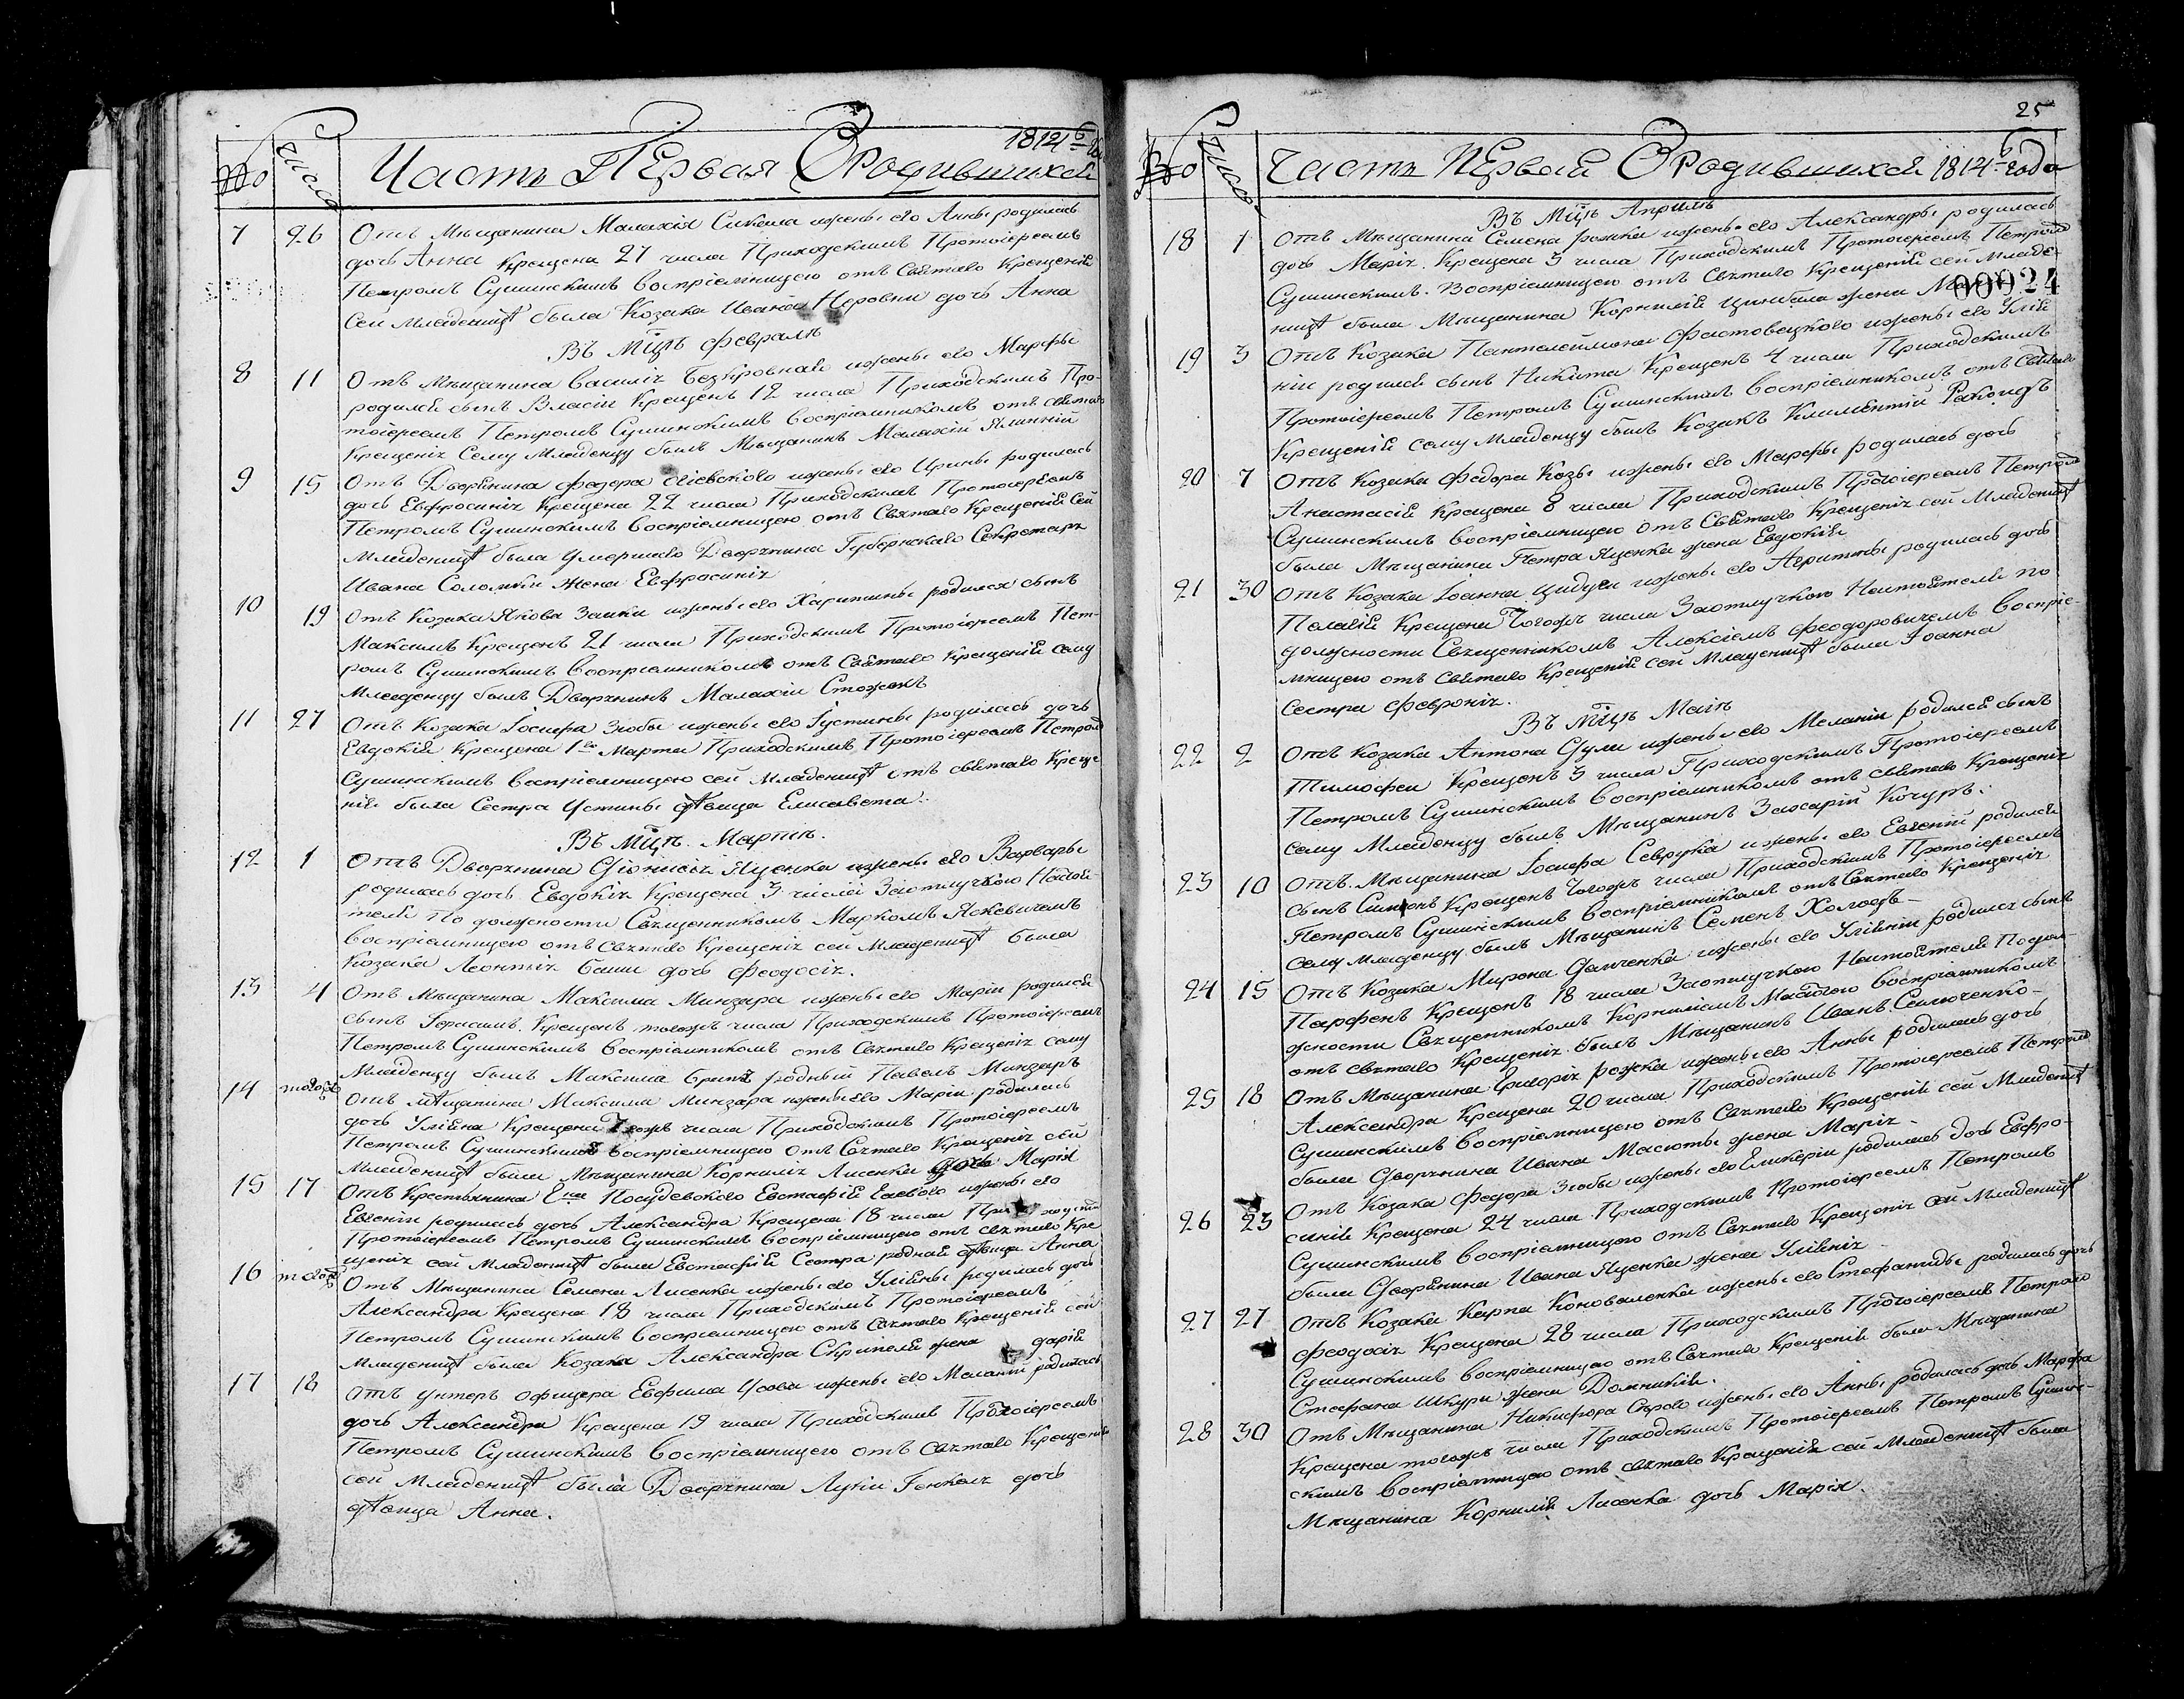 № Число Часть Первая О Родившихся 1814го года
7 26 Отъ Мѣщанина Малахія Сикала и жены его Анны родилась
дочь Анна Крещена 27 числа Приходскимъ Протоіереемъ
Петромъ Сушинскимъ воспріемницею отъ Святаго Крещенія
сей младеницѣ была Козака Ивана Неровни дочь Анна
Въ Мцѣ Февралѣ
8 11 Отъ Мѣщанина Василія Безкровнаго и жены его Марфы
родился сынъ Власій Крещенъ 12 числа Приходскимъ Про-
тоіереемъ Петромъ Сушинскимъ воспріемникомъ отъ святаго
Крещенія Сему Младенцу былъ Мѣщанинъ Малахій
9 15 Отъ Дворянина Федора и жены его Ирины родилась
дочь Евфросинія Крещена 22 числа Приходскимъ Протоіереемъ
Петромъ Сушинскимъ воспріемницею отъ Святаго Крещенія Сей
младеницѣ была умершаго Дворянина Губернскаго Секретаря
Ивана Соломки жена Евфросинія
10 19 Отъ Козака Якова Заики и жены его Харитины родился сынъ
Максимъ Крещенъ 21 числа Приходскимъ Протоіереемъ Пет-
ромъ Сушинскимъ воспріемникомъ отъ Святаго Крещенія сему
Младенцу былъ Дворянинъ Малахій Стожекъ
11 27 Отъ Козака Іосифа Зюбы и жены его Іустины родилась дочь
Евдокія Крещена 1го Марта Приходскимъ Протоіереемъ Петромъ
Сушинскимъ воспріемницею сей младеницѣ отъ святаго Креще-
нія была Сестра Устины дѣвица Елисавета.
Въ Мцѣ Мартѣ.
12 1 Отъ Дворянина Діонисія Яценка и жены его Варвары
родилась дочь Евдокія Крещена 3 числа За отлучкою Настоя-
теля по должности Священникомъ Маркомъ Яскевичемъ
воспріемницею отъ святаго Крещенія сей младеницѣ была
Козака Леонтія Баши дочь Феодосія.
13 4 Отъ Мѣщанина Максима Минзара и жены его Маріи родился
сынъ Герасимъ Крещенъ тогожъ числа Приходскимъ Протоіереемъ
Петромъ Сушинскимъ воспріемникомъ отъ Святаго Крещенія сему
Младенцу былъ Максима братъ родный Павелъ Минзаръ
14 тогожъ отъ мѣщанина Максима Минзара и жены его Маріи родилась
дочь Уліяна Крещена тогожъ числа Приходскимъ Протоіереемъ
Петромъ Сушинскимъ воспріемницею отъ Святаго Крещенія сей
младеницѣ была Мѣщанина Корнилія Лисенка дочь Марія
15 17 Отъ Крестьянина Евстафія и жены его
Евгеніи родилась дочь Александра Крещена 18 числа Приходскимъ
Протоіереемъ Петромъ Сушинскимъ воспріемницею отъ святаго Кре-
щенія сей младеницѣ была Евстафія Сестра родная дѣвица Анна
16 тогожъ Отъ Мѣщанина Семена Лисенка и жены его Уліяны родилась дочь
Александра Крещена 18 числа Приходскимъ Протоіереемъ
Петромъ Сушинскимъ воспріемницею отъ Святаго Крещенія сей
младеницѣ была Козака Александра Скрипеля жена Дарія
17 18 Отъ Унтеръ Офицера Евфима Усова и жены его Меланіи родилась
дочь Александра Крещена 19 числа Приходскимъ Протоіереемъ
Петромъ Сушинскимъ воспріемницею отъ святаго Крещенія
сей младеницѣ была Дворянина Лукіи дочь
дѣвица Анна.
25
№ Число Часть Первая О Родившихся 1814го года
Въ Мцѣ Априлѣ
18 1 Отъ Мѣщанина Семена Рожка и жены его Александры родилась
дочь Марія. Крещена 3 числа Приходскимъ Протоіереемъ Петромъ
Сушинскимъ. Воспріемницею отъ святаго Крещенія сей младе-
ницѣ была Мѣщанина Корнилія Цимбала жена
00024
19 3 Отъ Козака Пантелеймона Фастовецкого и жены его Улія-
ніи родился сынъ Никита Крещенъ 4 числа Приходскимъ
Протоіереемъ Петромъ Сушинскимъ воспріемникомъ отъ Святаго
Крещенія сему младенцу былъ Козакъ Климентій Ракоидъ
20 7 Отъ Козака Федора Козы и жены его Марфы родилась дочь
Анастасія Крещена 8 числа Приходскимъ Протоіереемъ Петромъ
Сушинскимъ воспріемницею отъ Святаго Крещенія сей младеницѣ
была Мѣщанина Петра Яценка жена Евдокія
21 30 Отъ Козака Іоанна Цидули и жены его Агрипины родилась дочь
Пелагія Крещена тогожъ числа За отлучкою Настоятеля по
должности Священникомъ Алексіемъ Феодоровичемъ воспріе-
мницею отъ святаго Крещенія сей младеницѣ была Іоанна
сестра Февронія.
Въ Мцѣ Маіѣ
22 2 Отъ Козака Антона Дули и жены его Меланіи родился сынъ
Тимофей Крещенъ 3 числа Приходскимъ Протоіереемъ
Петромъ Сушинскимъ воспріемникомъ отъ святаго Крещенія
сему Младенцу былъ Мѣщанинъ Захарій Кочуръ.
23 10 Отъ Мѣщанина Іосифа Севрука и жены его Евгеніи родился
сынъ Симеонъ Крещенъ тогожъ числа Приходскимъ Протоіереемъ
Петромъ Сушинскимъ воспріемникомъ отъ Святаго Крещенія
сему младенцу былъ Мѣщанинъ Семенъ Холодъ
24 15 Отъ Козака Мирона и жены его Уліяніи родился сынъ
Парфенъ Крещенъ 18 числа За отлучкою Настоятеля По дол-
жности Священникомъ Корниліемъ воспріемникомъ
отъ святаго Крещенія былъ Мѣщанинъ Иванъ
25 18 Отъ Мѣщанина Григорія Рожка и жены его Анны родилась дочь
Александра Крещена 20 числа Приходскимъ Протоіереемъ Петромъ
Сушинскимъ воспріемницею отъ Святаго Крещенія сей младеницѣ
была Дворянина Ивана Масюты жена Марія
26 23 Отъ Козака Федора Зюбы и жены его Гликеріи родилась дочь Евфро-
синія Крещена 24 числа Приходскимъ Протоіереемъ Петромъ
Сушинскимъ воспріемницею отъ Святаго Крещенія сей младеницѣ
была Дворянина Ивана Яценка жена Уліянія
27 27 Отъ Козака Карпа Коноваленка и жены его Стефаниды родилась дочь
Феодосія Крещена 28 числа Приходскимъ Протоіереемъ Петромъ
Сушинскимъ воспріемницею отъ Святаго Крещенія была Мѣщанина
Стефана Шкури жена Домникія.
28 30 Отъ Мѣщанина Никифора Сѣраго и жены его Анны родилась дочь Марфа
Крещена тогожъ числа Приходскимъ Протоіереемъ Петромъ Сушин-
скимъ воспріемницею отъ святаго Крещенія сей младеницѣ была
Мѣщанина Корнилія Лисенка дочь Марія.